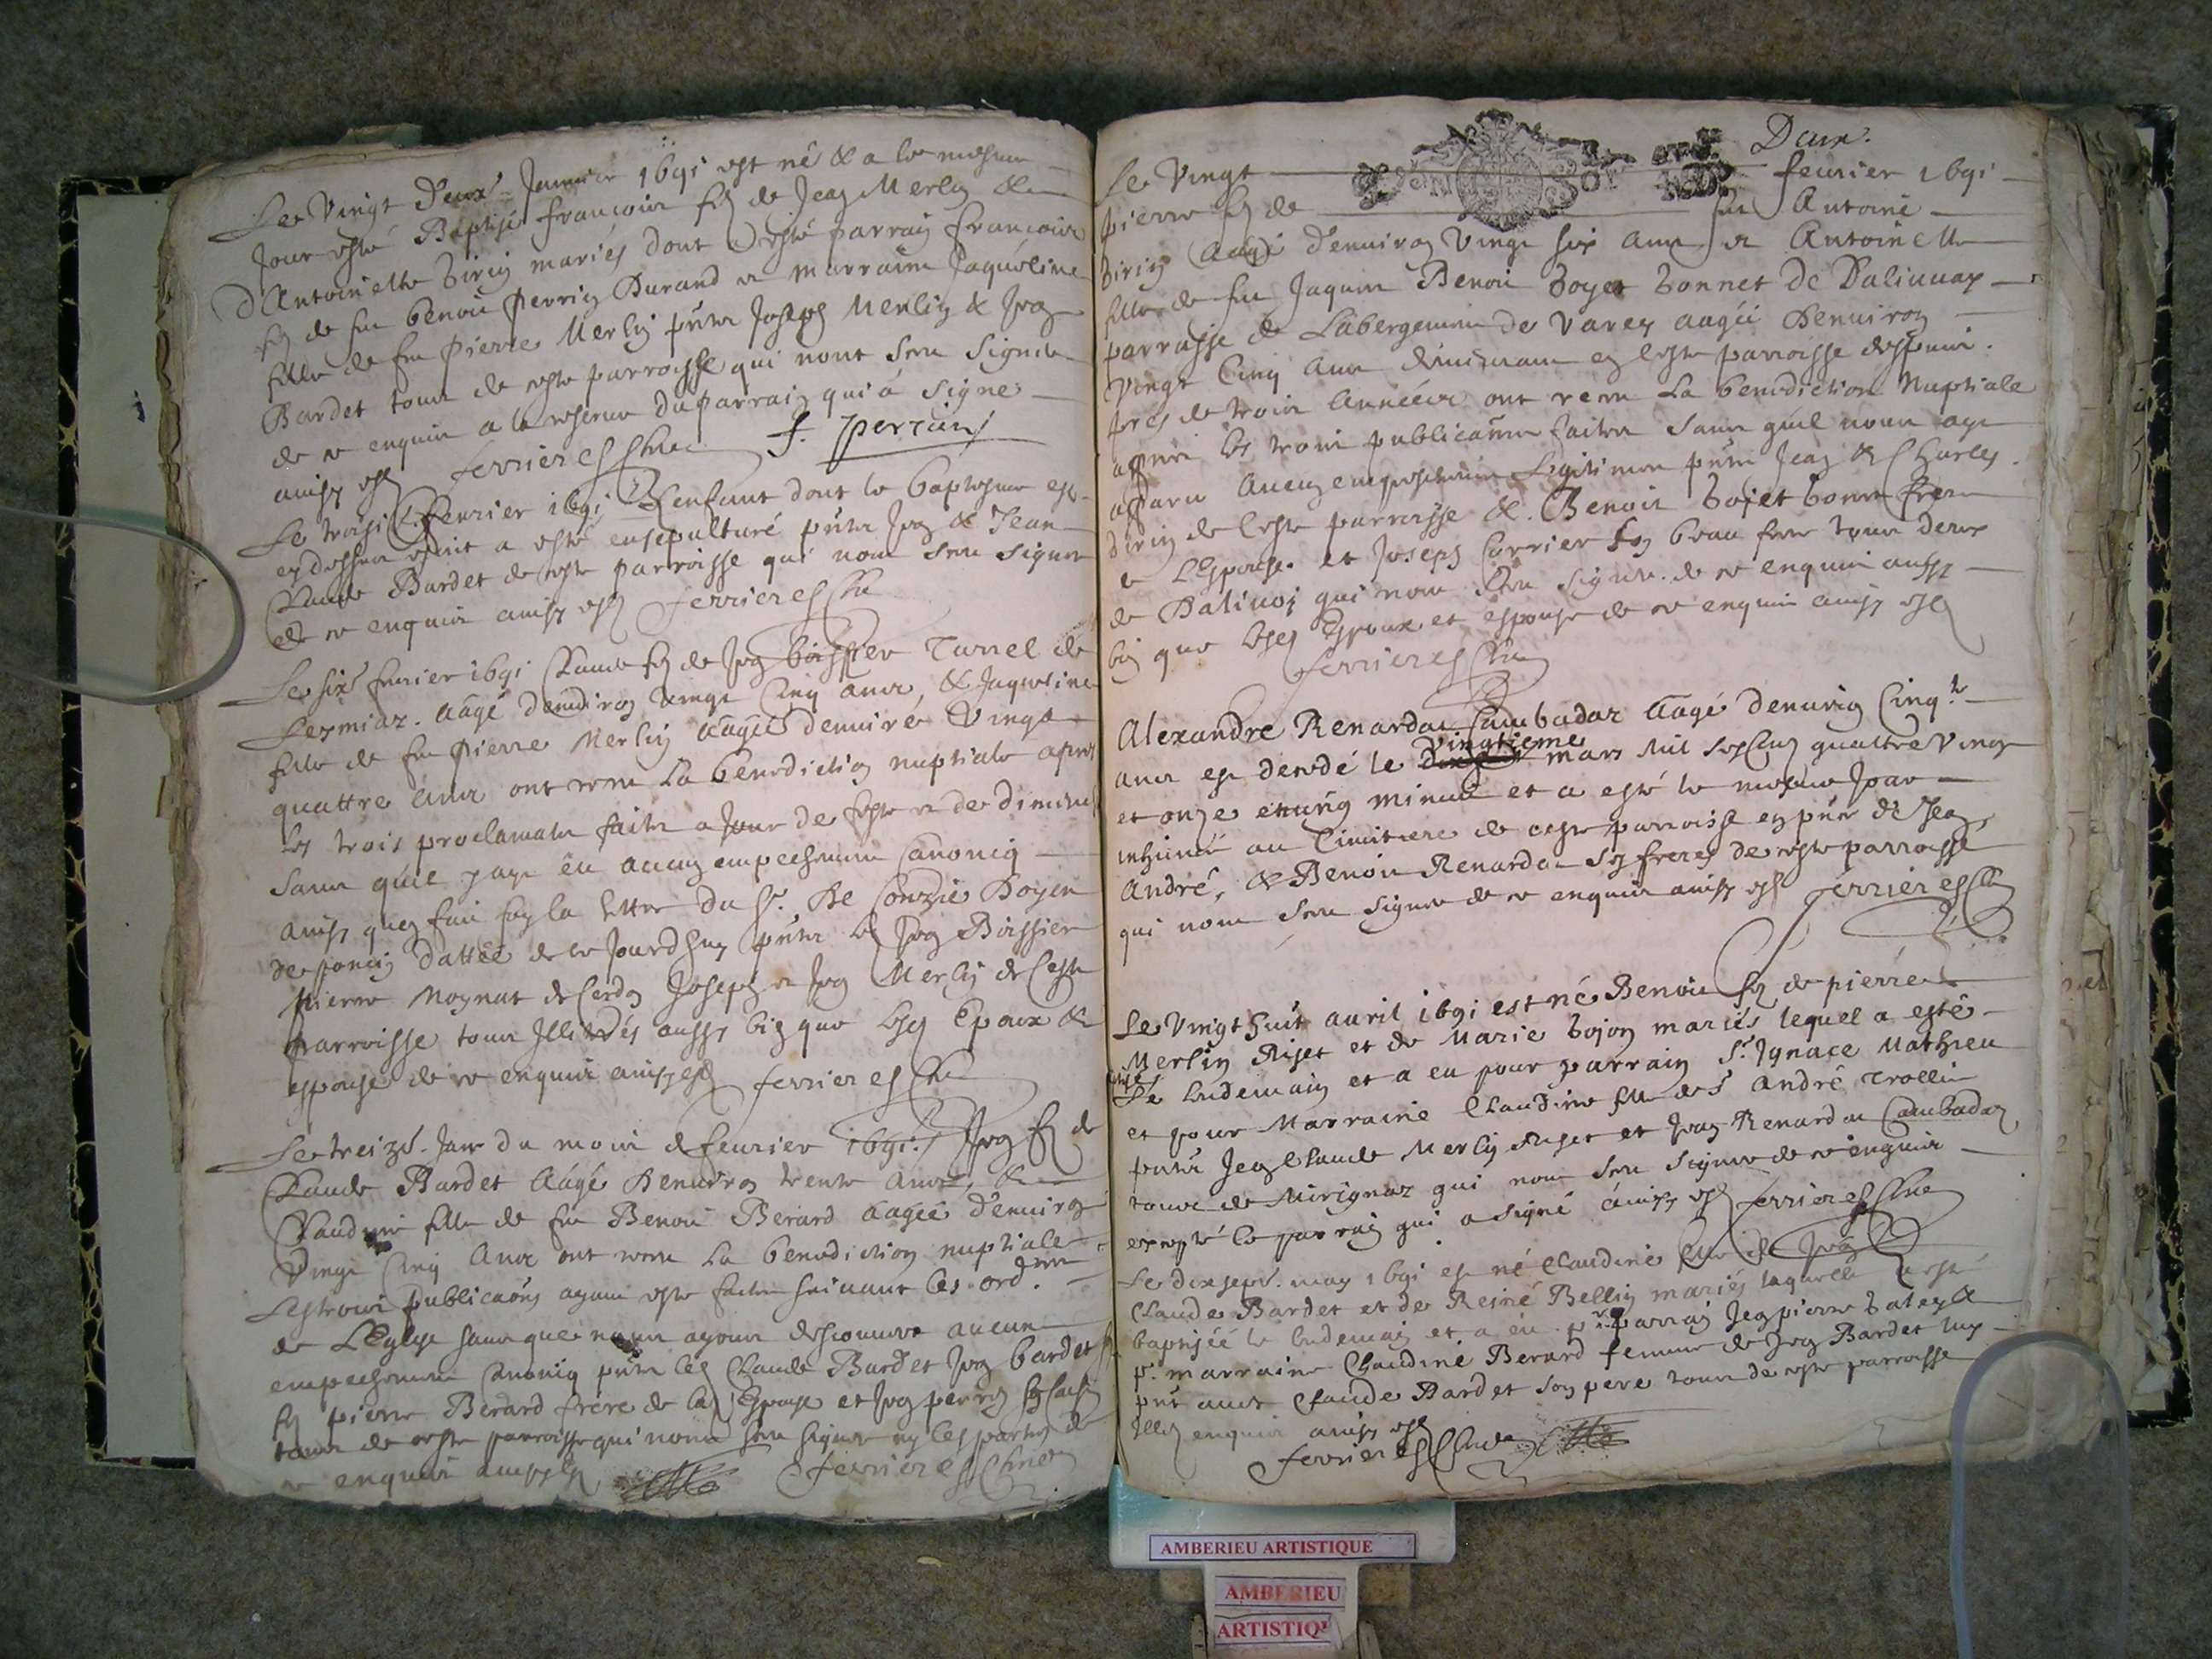 Le Vingt Deux Janvier 1691 est né & a le mesme
Jour esté Baptisé francois fs de Jean Merlin &
D'Antoinette Virin mariés dont a esté parrain francois
fs de feu benoit Perrin Durand et marraine Jaquéline
fille de feu Pierre Merlin pntz Joseph Merlin & Jean
Bardet tous de ceste parroisse qui nont sceu signer
de ce enquis a la reserve du parrain qui à signe
ainsy est ferrieres Curé f. perrin
Le troisie. feurier 1691 L'enfant dont le baptesme est
cy dessus escrit a esté ensepulturé pntz Jean & Jean
Claude Bardet de ceste parroisse qui nont sceu signer
de ce enquis ainsy est ferrieres Curé
Le six feurier 1691 Claude fs de Jean boissier Turrel de
Leymiaz. aagé denuiron vingt Cinq ans, & Jaqueline
fille de feu Pierre Merlin aagée denuiré Vingt
quattre ans ont receu La benediction nuptiale apres
les trois proclamats faites a Jour de feste et de dimanche
sans quil y aye eu aucun empeschement Canoniq
ainsy quen fait foy la lettre du Sr. De Conzie Doyen
de poncin dattée de ce Jourdhuy pntz led Jean Boissier
Pierre Moynat de Cerdon Joseph et Jean Merlin de Ceste
parroisse tous Illiterés aussy bien que lesd Epoux &
espouse de ce enquis ainsy est ferrieres Curé
Le treizé. Jour du mois de feurier 1691. Jean fs de
Claude Bardet Aagé Denuiron trente ans, &
Claudine fille de feu Benoit Berard aagée d'enuiron
Vingt Cinq Ans ont receu La benediction nuptiale
Les trois publicaons ayant esté faites suiuant les ord.
de L'Eglise sans que nous ayons descouuert aucun
empeschement Canoniq pntz led Claude Bardet Jean bardet
fs pierre Berard frere de lad Espouse et Jean perrin
tous de ceste parroisse qui nont sceu signer ny les parties de
ce enquis ainsy est ferrieres Curé
Deux.
Le Vingt feurier 1691
pierre fs de feu Antoine
Virin Aagé d'enuiron vingt six ans et Antoinette
fille de feu Jaques Benoit boyet bonnet De Daliuuay
parroisse de Labergement de Varey aagée Denuiron
vingt Cinq ans demeurant en ceste parroisse despuis
pres de trois Années ont receu La benediction Nuptiale
apres les trois publications faites sans quil nous aye
apparu Aucun empeschement Legitime pntz Jean & Charles
Virin de Ceste parroisse & Benoit boyet bonnet frere
de L'Espouse et Joseph Carrier son beau frere tous deux
de Daliuoy qui nont sceu signer de ce enquis aussy
bien que lesd Espoux et espouse de ce enquis ainsy est
ferrieres Curé
Alexandre Renardat Cambadaz Aagé denuiron Cinq.te
ans est decedé le vingtieme mars Mil six Cens quattre Vingt
et onze enuiron minuit et a esté le mesme Jour
inhumé au Cimitiere de ceste parroisse en pnce de Jean,
André, & Benoit Renardat ses freres de ceste parroisse
qui nont sceu signer de ce enquis ainsy est ferrieres Curé
Le Vingt huit auril 1691 est né Benoit fs de pierre
Merlin Riset et de Marie bojon mariés lequel a esté
baptisé Le lendemain et a eu pour parrain Sr. Ignace Mathieu
et pour Marraine Claudine fille de S André Trollin
pntz Jean Claude Merlin Riset et Jean Renardat Cambadaz
tous de Merignaz qui nont sceu signer de ce enquis
excepté le parrain qui a signé ainsy est ferrieres Curé
Le dix sept. may 1691 est né Claudine fille de Jean
Claude Bardet et de Reiné Bellin mariés laquelle a esté
baptisée le lendemain et a eu pr. parrain Jean pierre &
pr. marraine Claudine Berard femme de Jean Bardet
pnt aussi Claude Bardet son pere tous de ceste parroisse
enquis ainsy est
ferrieres Curé
AMBERIEU ARTISTIQUE
AMBERIEU
ARTISTIQ